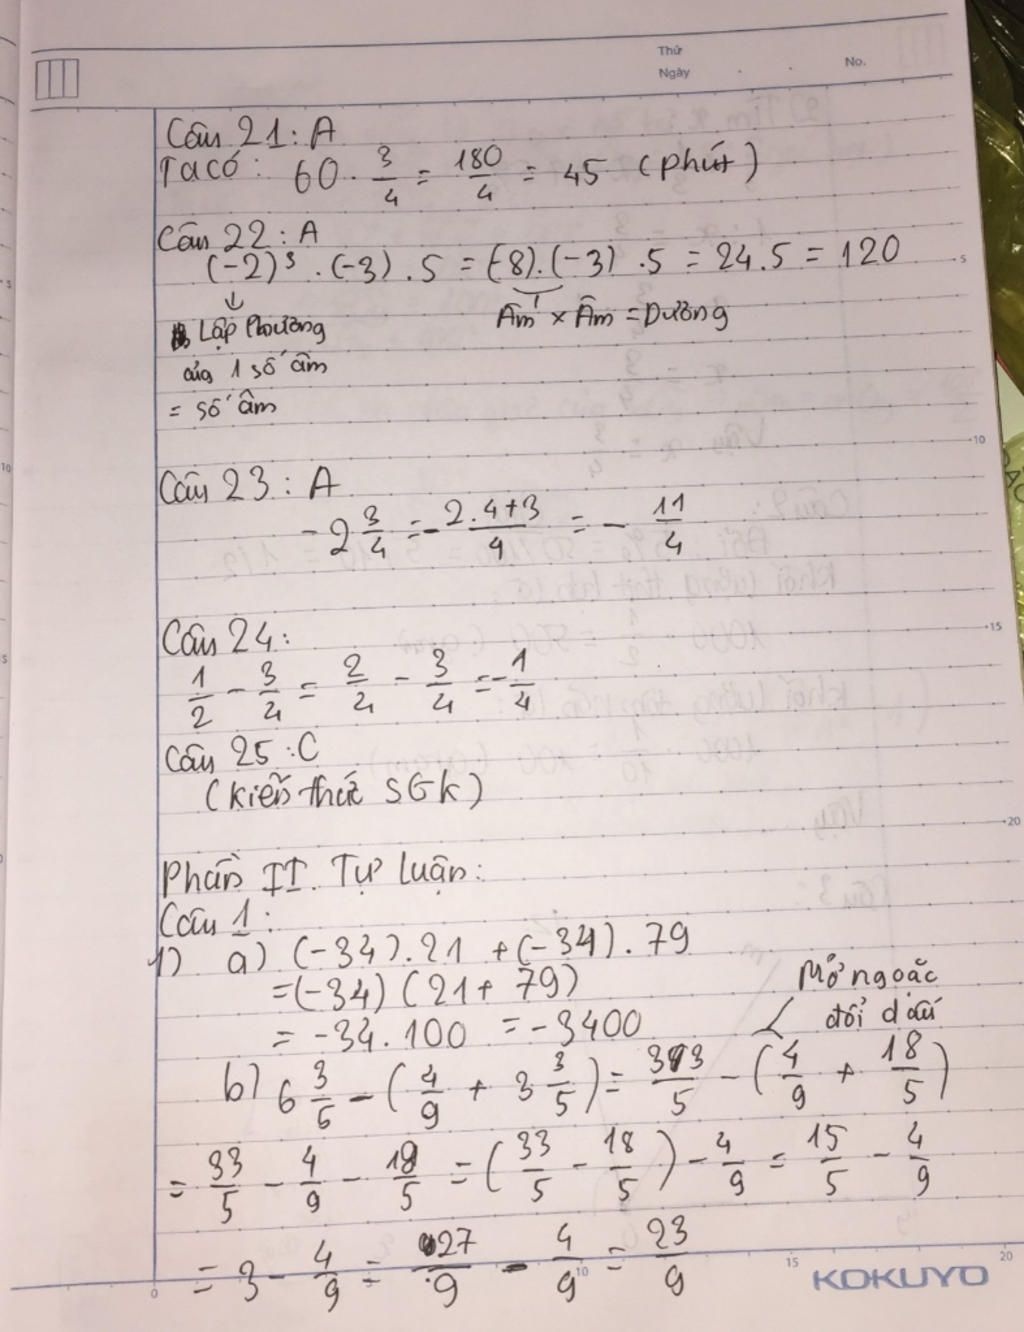 Thứ
Ngày
No.
Câu 21: A
Ta có: 60 . 3/4 = 180/4 = 45 (phút)
Câu 22: A
(-2)³ . (-3) . 5 = (-8).(-3) . 5 = 24.5 = 120
↓
Âm × Âm = Dương
Lập Phương
của 1 số âm
= số âm
Câu 23: A
-2 3/4 = - 2.4+3/4 = - 11/4
Câu 24:
1/2 - 3/4 = 2/4 - 3/4 = -1/4
Câu 25: C
(kiến thức SGK)
Phần II. Tự luận:
Câu 1:
1) a) (-34).21 + (-34).79
= (-34) (21+ 79)
= -34.100 = -3400
Mở ngoặc
đổi dấu
b) 6 3/5 - (4/9 + 3 3/5) = 33/5 - (4/9 + 18/5)
= 33/5 - 4/9 - 18/5 = (33/5 - 18/5) - 4/9 = 15/5 - 4/9
= 3 - 4/9 = 27/9 - 4/9 = 23/9
KOKUYO
5
10
15
20
0
10
15
20